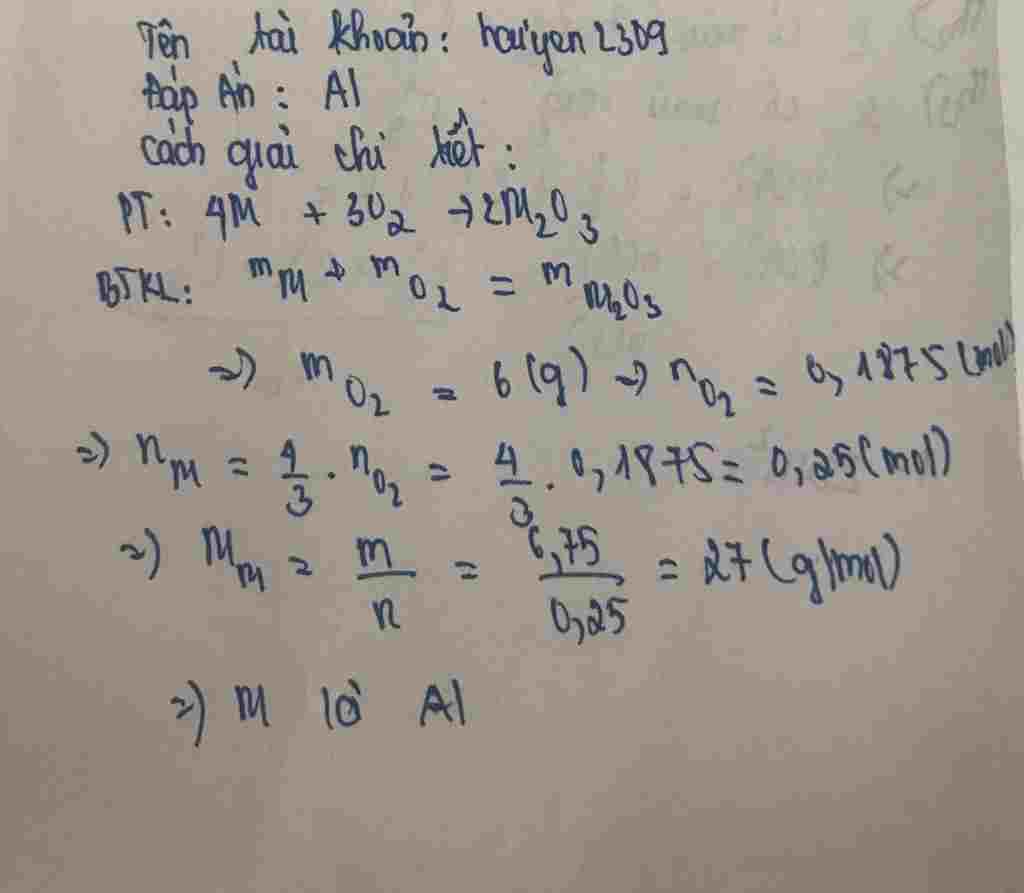 Tên tài khoản: haiyen2309
Đáp Án: Al
Cách giải chi tiết:
PT: 4M + 3O₂ → 2M₂O₃
BTKL: mM + mO₂ = mM₂O₃
=) mO₂ = 6 (g) → nO₂ = 0,1875 (mol)
=) nM = 4/3 . nO₂ = 4/3 . 0,1875 = 0,25 (mol)
=) MM = m/n = 6,75/0,25 = 27 (g/mol)
=) M là Al